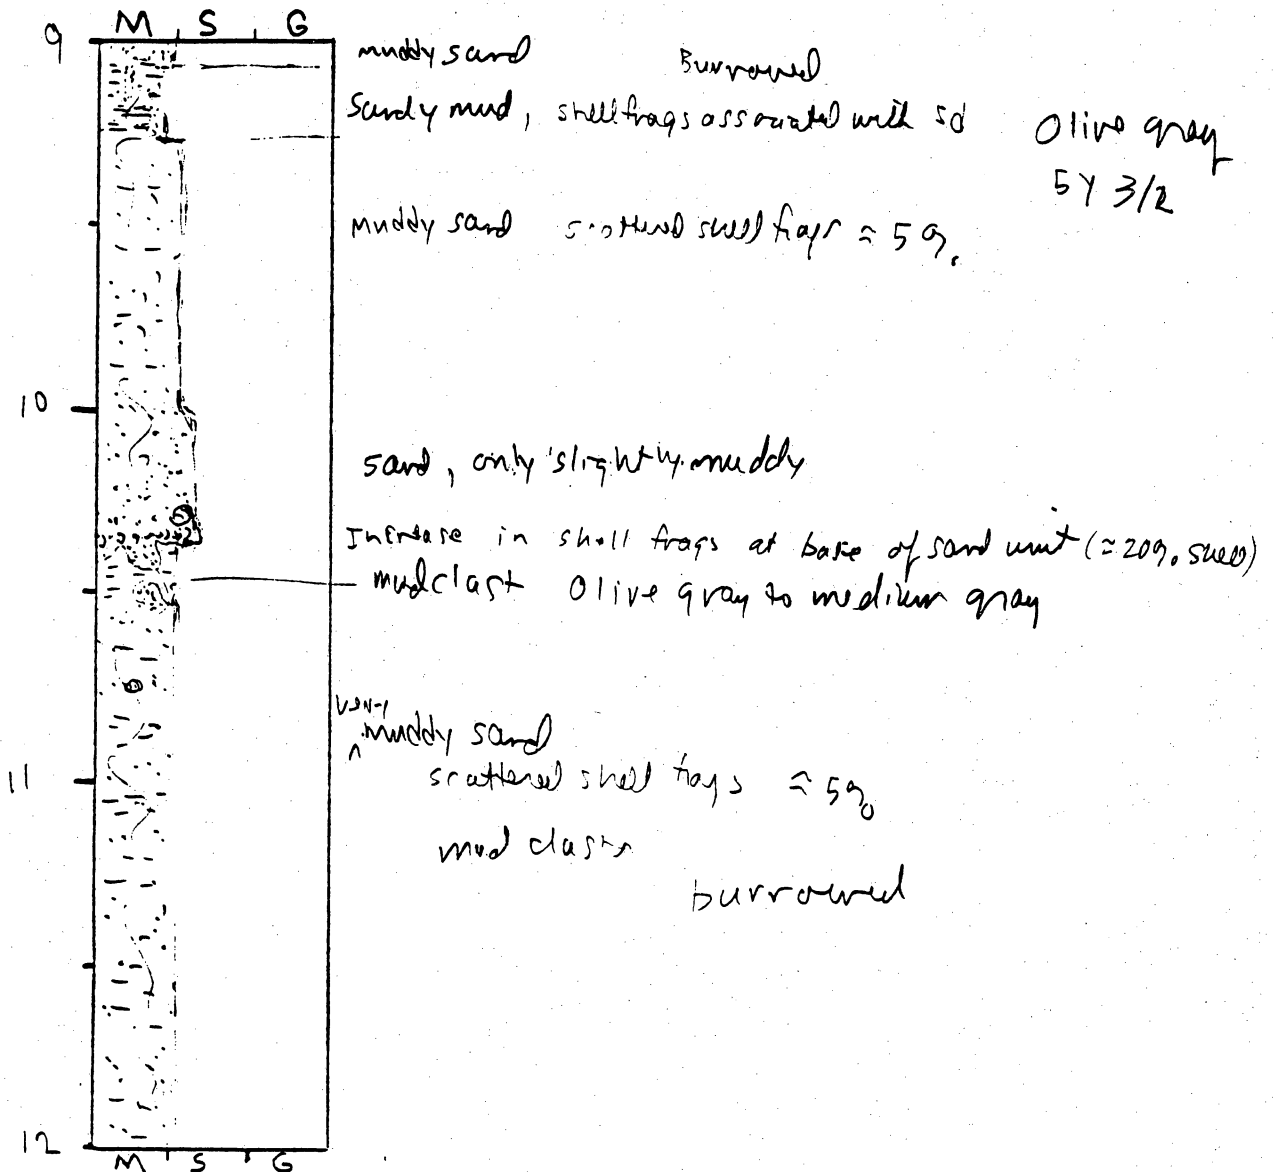 M S G
9
muddy sand Burrowed
Sandy mud, shell frags associated with sd
Olive gray
5Y 3/2
muddy sand scattered shell frags ≈ 5%
10
sand, only slightly muddy
Increase in shell frags at base of sand unit (≈20% shell)
mud clast Olive gray to medium gray
very
^muddy sand
11
scattered shell frags ≈ 5%
mud clasts
burrowed
12
M S G